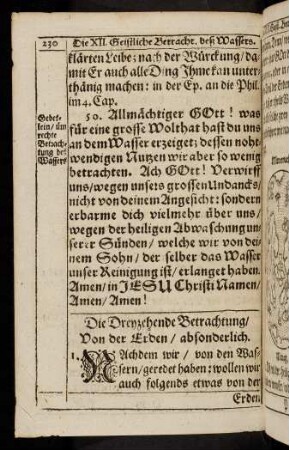 230
Die XII. Geistliche Betracht. deß Wassers.
klärten Leibe; nach der Würckung / da-
mit Er auch alle Ding Ihme kan unter-
thänig machen: in der Ep. an die Phil.
im 4. Cap.
50. Allmächtiger GOtt! was
für eine grosse Wolthat hast du uns
an dem Wasser erzeiget; dessen noht-
wendigen Nutzen wir aber so wenig
betrachten. Ach GOtt! Verwirff
uns / wegen unsers grossen Undancks /
nicht von deinem Angesicht: sondern
erbarme dich vielmehr über uns /
wegen der heiligen Abwaschung un-
serer Sünden / welche wir von dei-
nem Sohn / der selber das Wasser
unser Reinigung ist / erlanget haben.
Amen / in JESU Christi Namen /
Amen / Amen!
Gebet-
lein / um
rechte
Betrach-
tung deß
Wassers
Die Dreyzehende Betrachtung /
Von der Erden / absonderlich.
1. NAchdem wir / von den Was-
sern / geredet haben: wollen wir
auch folgends etwas von der
Erden